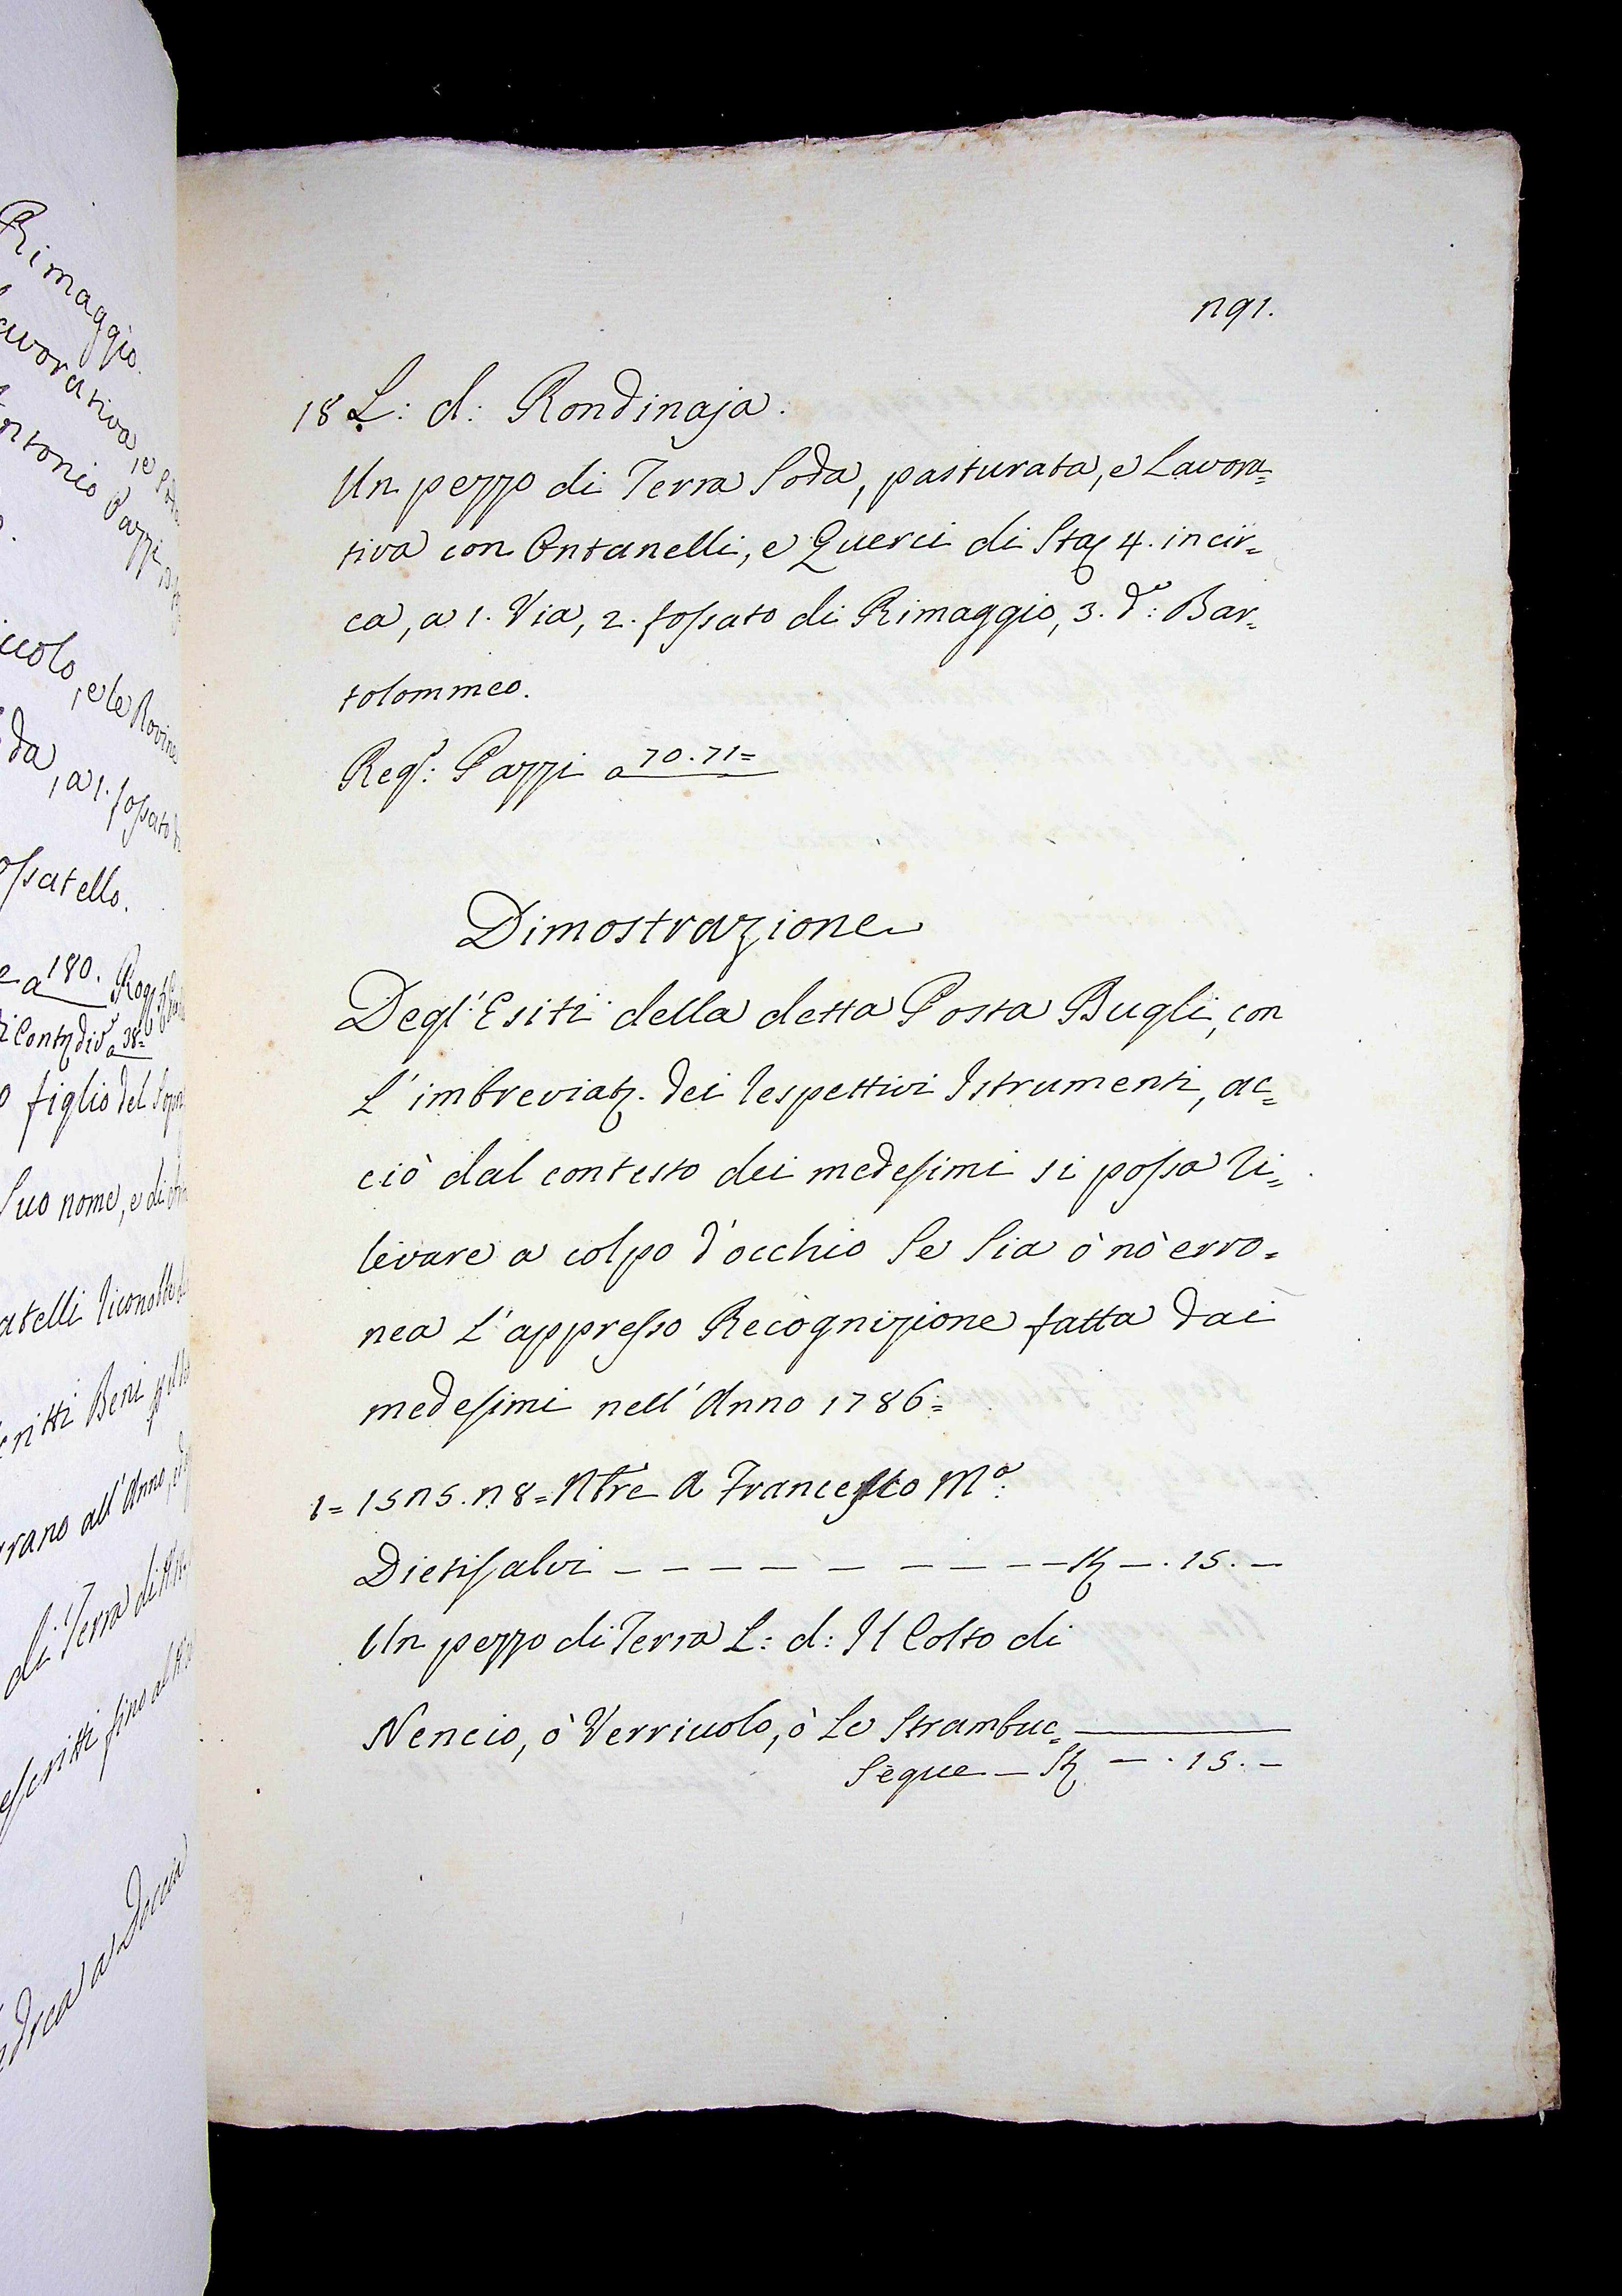 Rimaggio.
avorativa, e Soda
Antonio Pazzi
icolo, e le Rovine
da, a 1. fossato
ossatello.
e a 180.
figlio del Sopra
Suo nome, e di
atelli riconobbe
critti Beni
rrano all'Anno,
di Terra di
escritti fino al
ndrea a Doccia
191.
18 L: d: Rondinaja.
Un pezzo di Terra Soda, pasturata, e Lavora=
tiva con Ontanelli, e Querci di Staj 4. incir=
ca, a 1. Via, 2. fossato di Rimaggio, 3. do: Bar=
tolommeo.
Regro: Pazzi a 70. 71=
Dimostrazione
Degl'Esiti della detta Posta Bugli, con
L'imbreviatz. dei respettivi Istrumenti, ac=
ciò dal contesto dei medesimi si possa ri=
levare a colpo d'occhio Se Sia ò nò erro=
nea L'appresso Recognizione fatta dai
medesimi nell'Anno 1786=
1= 1515. 18= Nbre A Francesco Ma:
Dietisalvi – – – – – – – – – – – St – . 15. –
Un pezzo di Terra L: d: Il Colto di
Nencio, ò Verriuolo, ò Le Strambuc=
Segue – St – . 15. –